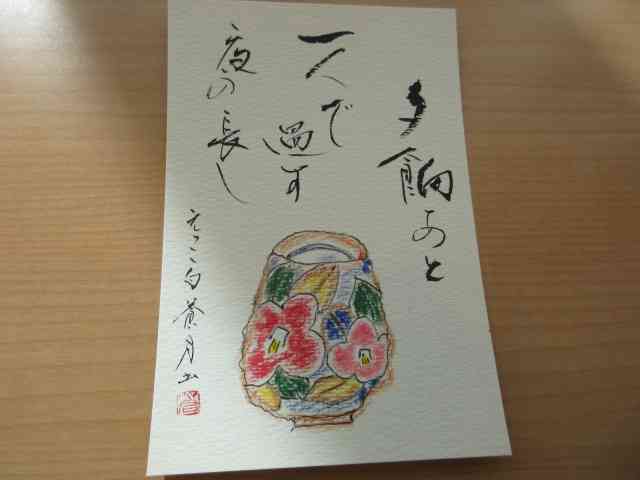 夕餉あと
一人で
過す
夜の長し
えつこ句 蒼月